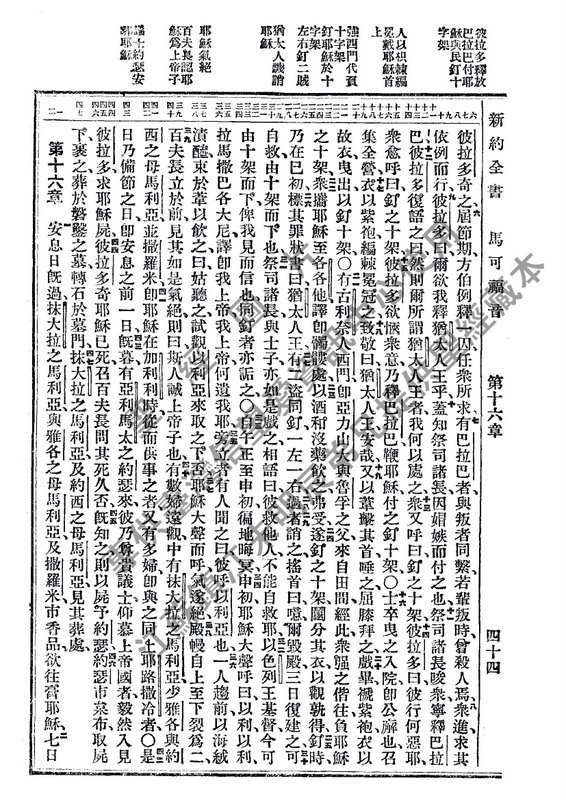 新約全書 馬可福音 第十六章 四十四
彼拉多釋放
巴拉巴付耶
穌與民釘十
字架
人以棘編
冕戴耶穌首
上
強西門代負
十字架
釘耶穌於十
字架
左右釘二賊
猶太人譏誚
耶穌
耶穌氣絕
百夫長認耶
穌爲上帝子
議士約瑟安
葬耶穌
彼拉多奇之屆節期方伯例釋一囚任衆所求有巴拉巴者與叛者同繫若輩叛時曾殺人焉衆進求其
依例而行彼拉多曰爾欲我釋猶太人王乎蓋知祭司諸長因媢嫉而付之也祭司諸長唆衆寧釋巴拉
巴彼拉多復語之曰然則爾所謂猶太人王者我何以處之衆又呼曰釘之十架彼拉多曰彼行何惡耶
衆愈呼曰釘之十架彼拉多欲愜衆意乃釋巴拉巴鞭耶穌付之釘十架〇士卒曳之入院卽公廨也召
集全營衣以紫袍編棘冕冠之致敬曰猶太人王安哉又以葦擊其首唾之屈膝拜之戲畢褫紫袍衣以
故衣曳出以釘十架〇有古利奈人西門卽亞力山大與魯孚之父來自田間經此衆強之偕往負耶穌
之十架衆攜耶穌至各各他譯卽髑髏處以酒和沒藥飲之弗受遂釘之十架鬮分其衣以觀孰得釘時
乃在巳初標其罪狀書曰猶太人王有二盜同釘一左一右過者誚之搖首曰噫爾毀殿三日復建之可
自救由十架而下也祭司諸長與士子亦如是戲之相語曰彼救他人不能自救耶以色列王基督今可
由十架而下俾我見而信也同釘者亦詬之〇自午正至申初徧地晦冥申初耶穌大聲呼曰以利以利
拉馬撒巴各大尼譯卽我上帝我上帝何遺我耶旁立者有人聞之曰彼呼以利亞也一人趨前以海絨
漬醯束於葦以飲之曰姑聽之試觀以利亞來取之下否耶穌大聲而呼氣遂絕殿幔自上至下裂爲二
百夫長立於前見其如是氣絕則曰斯人誠上帝子也有數婦遠觀中有抹大拉之馬利亞少雅各與約
西之母馬利亞並撒羅米卽耶穌在加利利時從而供事之者又有多婦卽與之同上耶路撒冷者〇是
日乃備節之日卽安息之前一日旣暮有亞利馬太之約瑟來彼乃尊貴議士仰慕上帝國者毅然入見
彼拉多求耶穌屍彼拉多奇耶穌已死召百夫長問其死久否旣知之則以屍予約瑟約瑟市枲布取屍
下裹之葬於磐鑿之墓轉石於墓門抹大拉之馬利亞及約西之母馬利亞見其葬處
第十六章 安息日旣過抹大拉之馬利亞與雅各之母馬利亞及撒羅米市香品欲往膏耶穌七日